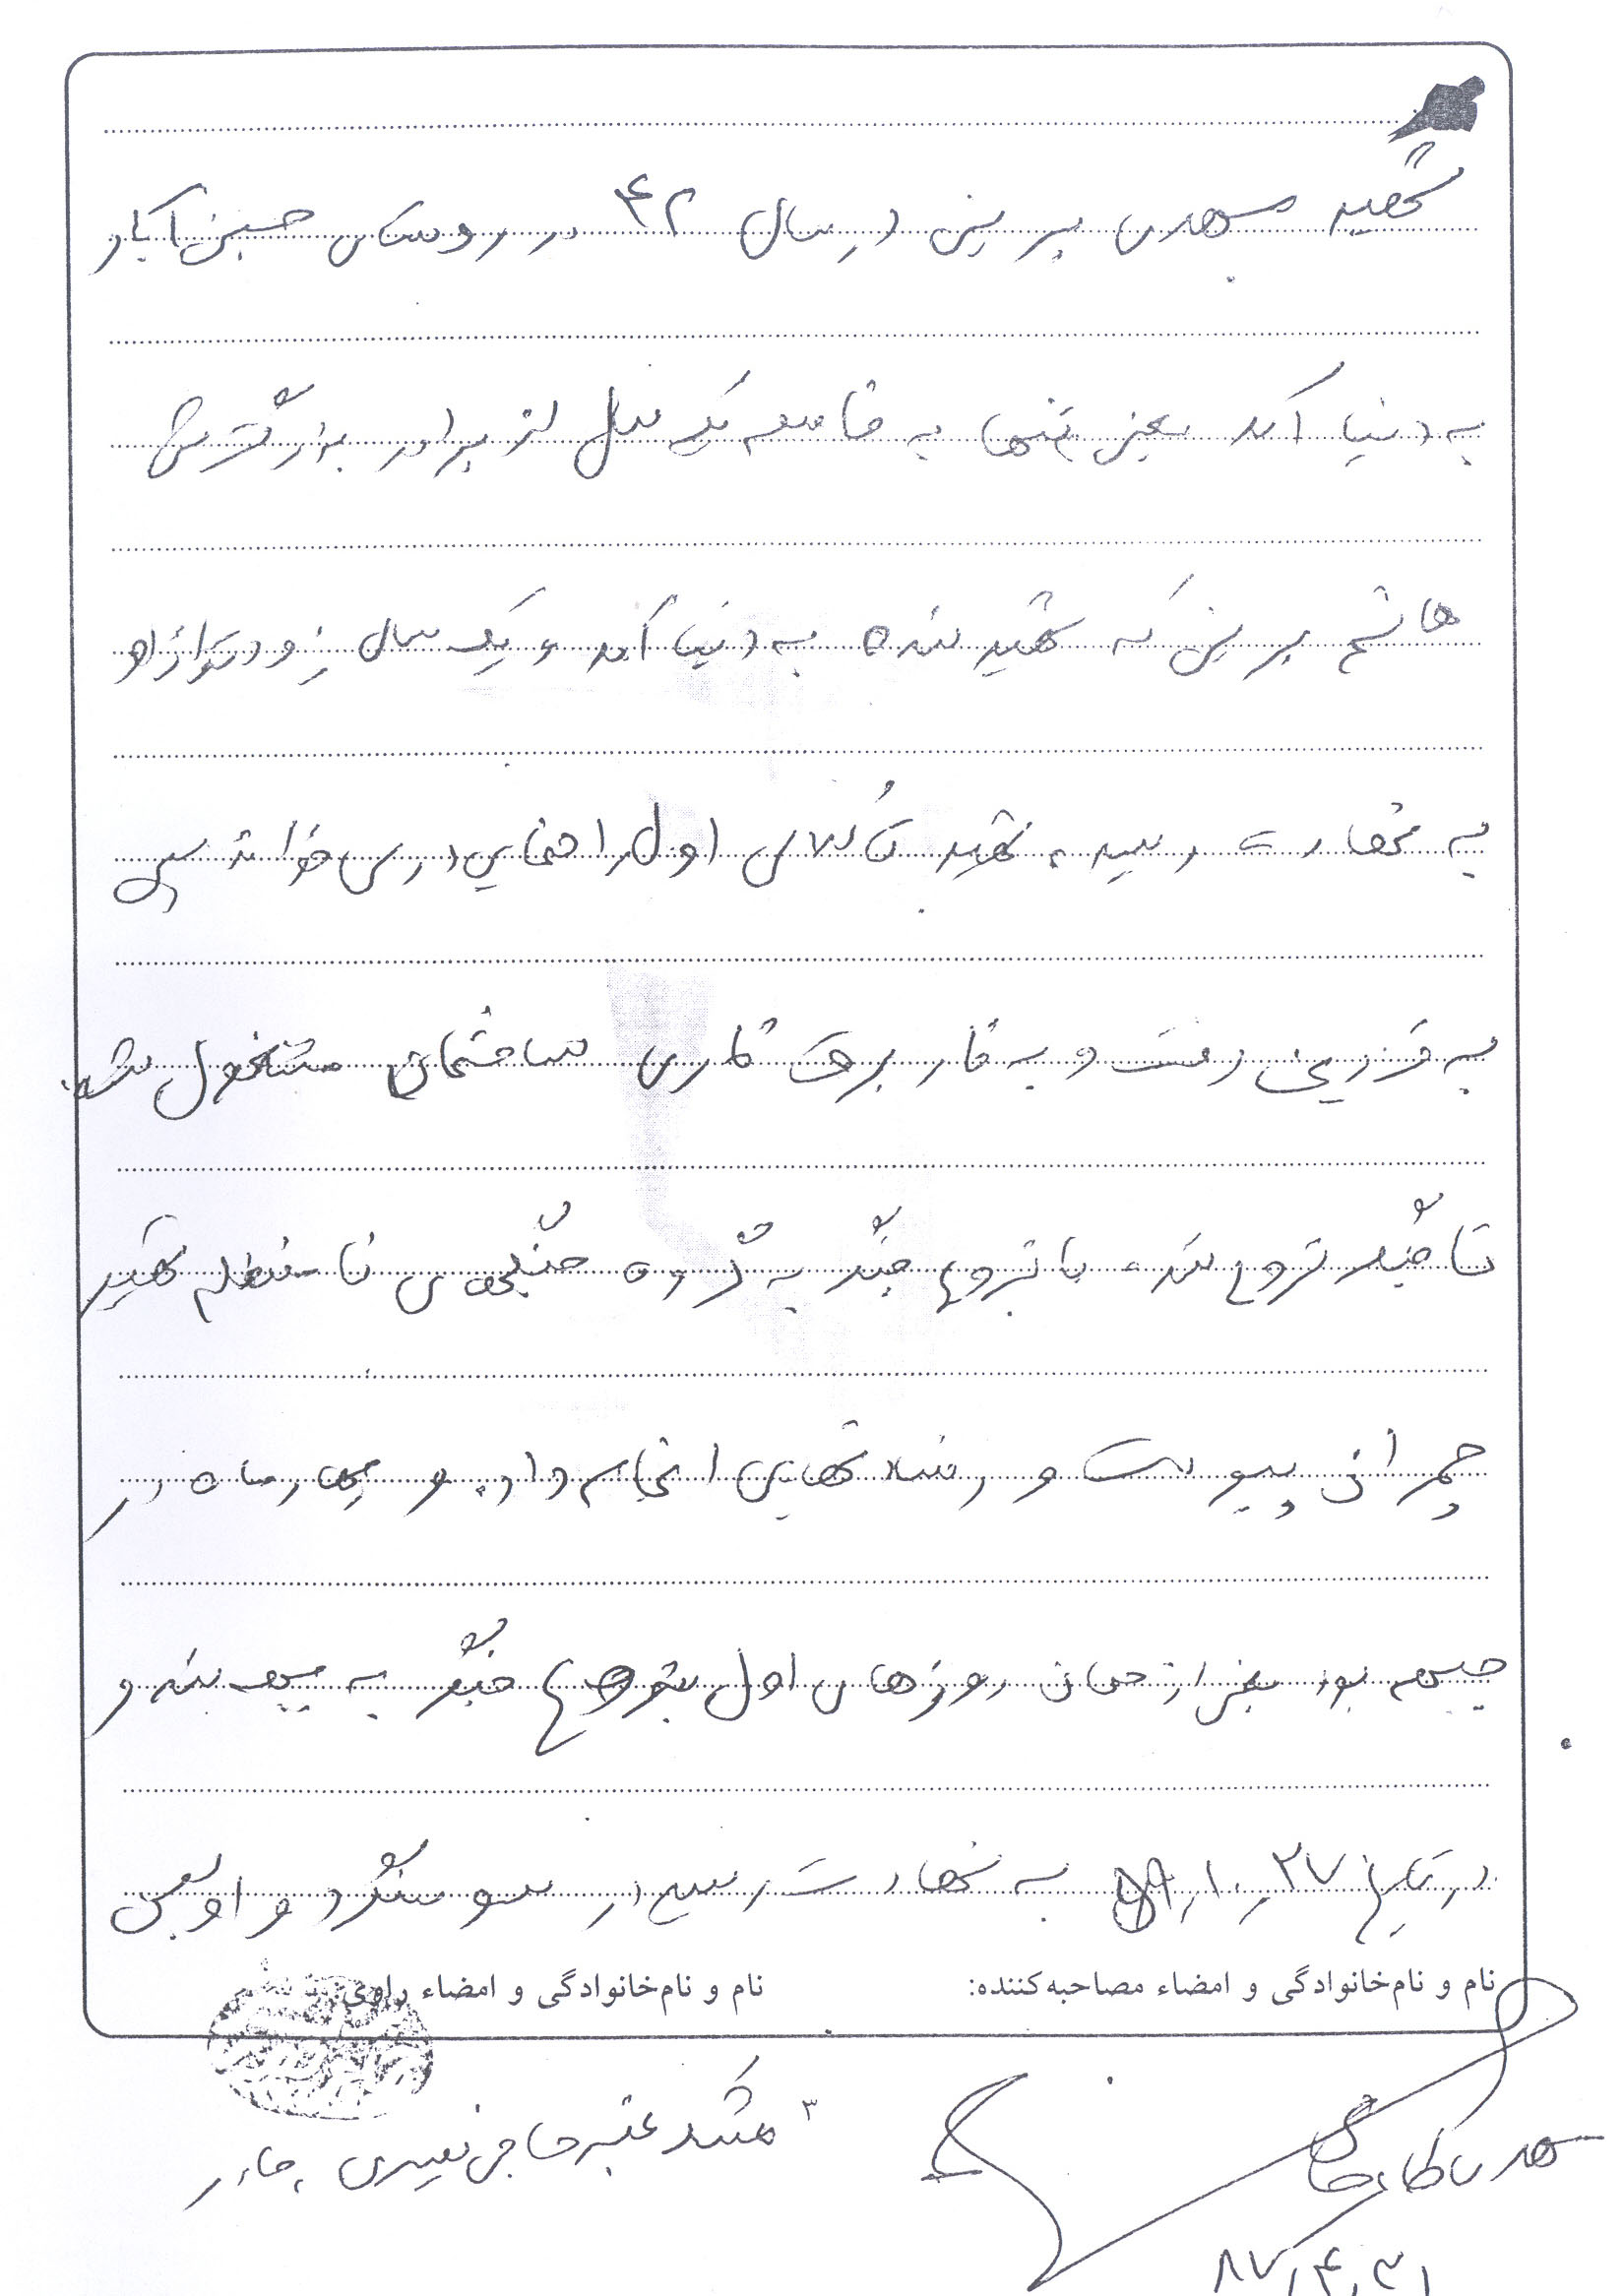 شهید مهدی پرین در سال ۴۲ در روستای حسین آباد
به دنیا آمد یعنی تنها به فاصله یک سال از برادر بزرگترش
هاشم پرین که شهید شده به دنیا آمد و یک سال زودتر از او
به شهادت رسید، شهید تا کلاس اول راهنمایی درس خواند سپس
به قزوین رفت و به کار برق کاری ساختمان مشغول شد
تا جنگ شروع شد. با شروع جنگ به گروه جنگهای نامنظم شهید
چمران پیوست و رشادتهایی انجام داد. و چهار ماه در
جبهه بود یعنی از همان روزهای اول شروع جنگ به جبهه شد و
در تاریخ ۵۹,۱۰,۲۷ به شهادت رسید در سوسنگرد و اولین
نام و نام‌خانوادگی و امضاء مصاحبه‌کننده:
نام و نام‌خانوادگی و امضاء راوی:
۳
حاجی نصیری، مادر
۸۷,۴,۳۱